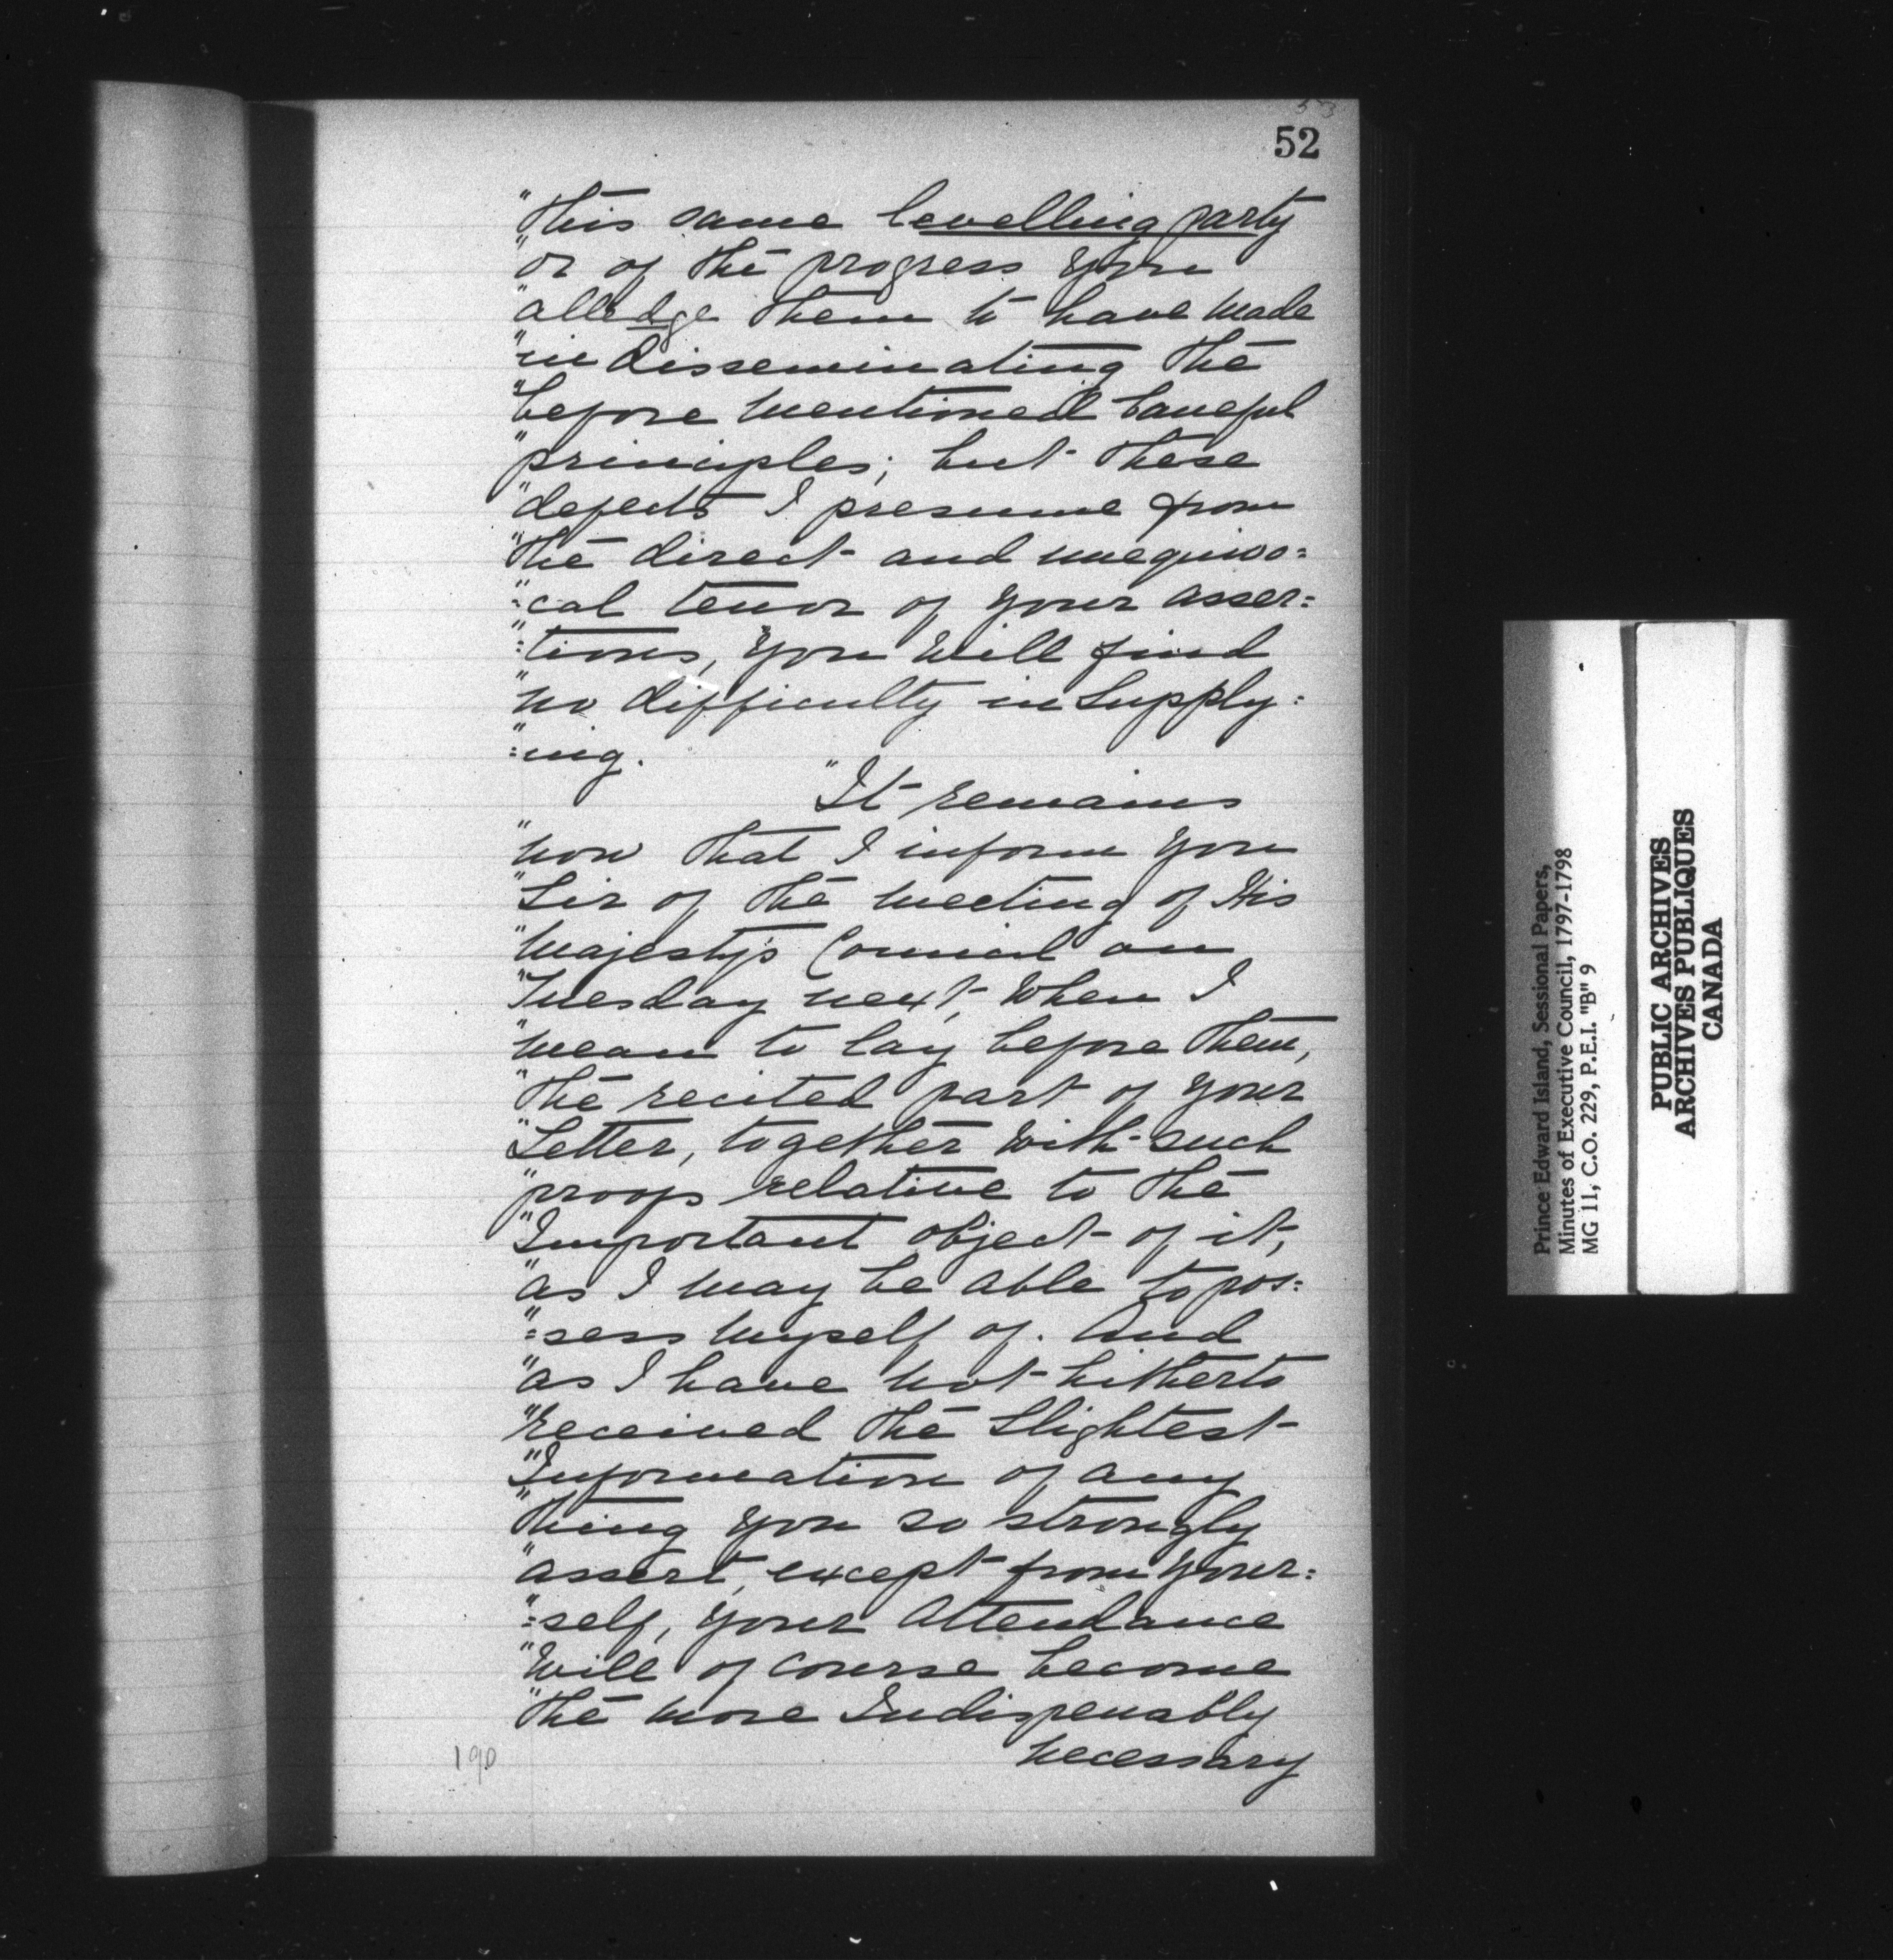 53
52
"this same levelling party
"or of the progress you
"alledge them to have made
"in disseminating the
"before mentioned baneful
"principles; but these
"defects I presume from
"the direct and unequivo=
"=cal tenor of your asser=
"=tions, you will find
"no difficulty in Supply=
"=ing.
"It remains
"now that I inform you
"Sir of the meeting of His
"Majesty's Council on
"Tuesday next, when I
"mean to lay before them,
"the recited part of your
"Letter, together with such
"proofs relative to the
"Important object of it,
"as I may be able to pos=
"=sess myself of. And
"as I have not hitherto
"received the Slightest
"Information of any
"thing you so strongly
"assert, except from your=
"=self, your Attendance
"will of course become
"the more Indispensably
necessary
190
Prince Edward Island, Sessional Papers,
Minutes of Executive Council, 1797-1798
MG 11, C.O. 229, P.E.I. "B" 9
PUBLIC ARCHIVES
ARCHIVES PUBLIQUES
CANADA